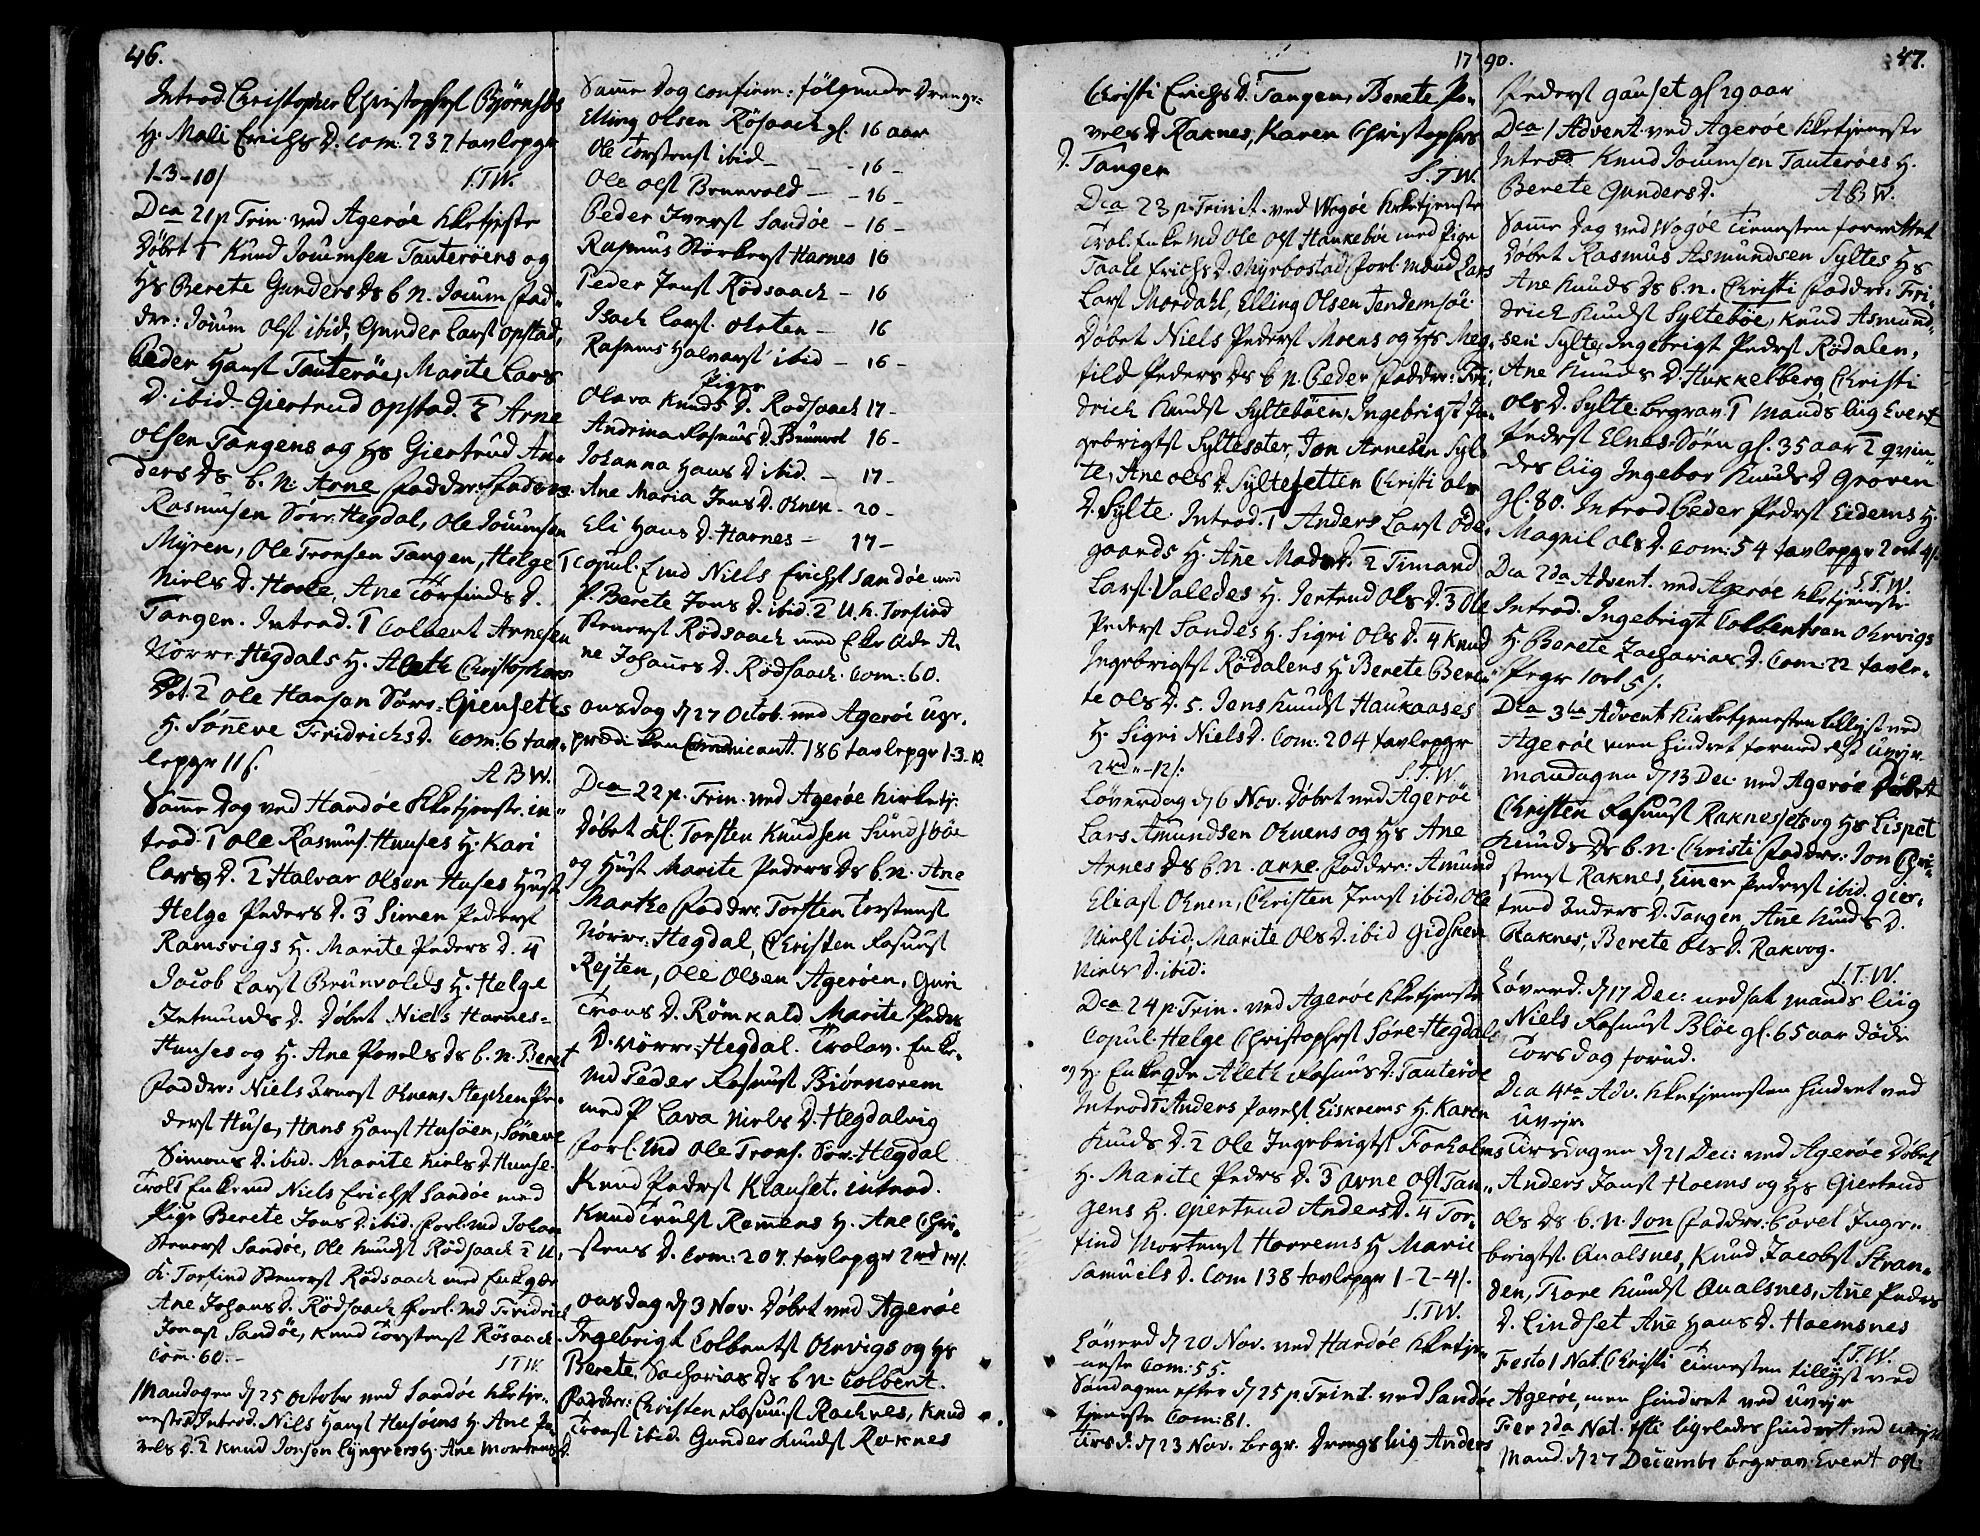 46.
Introd. Christopher Christophersl Bjørnsbs
H. Mali Erichs D. Com: 237 tavlepgr
1-3-10/ S.T.W.
Dca 21 p. Trin. ved Agerøe kketjeste
Døbet 1 Knud Joumsen Tauterøens og
Hs Berete Gunders Ds b. N. Joum fad-
dre: Joum Olsl ibid, Gunder Larsl opstad,
Peder Hansl Tauterøe, Marite Lars
D. ibid. Giertrud opstad. 2 Arne
Olsen Tangens og Hs Giertrud An-
ders Ds b. N: Arne faddre:
Rasmusen Sørr Hegdal, Ole Joumsen
Myren, Ole Tronsen Tangen, Helge
Niels D. Hoole, Ane Torfinds D.
Tangen. Introd. 1 Colbent Arnesen
Nørre Hegdals H. Aleth Christophers
Dot. 2 Ole Hansen Sørr-Gjensets
H. Sønneve Fridrichs D. Com: 6 tav-
lepgr 11 s.
A B W.
Samme Dag ved Handøe kketjenste in-
trod. 1 Ole Rasmus. Huuses H. Kari
Lars D. 2 Halvar Olsen Huses Hust
Helge Peders D. 3 Simen Pedersl
Ramsvigs H. Marite Peders D. 4
Jacob Larsl Brunvolds H. Helge
Jetmunds D. Døbet Niels Harnes-
Huuses og H. Ane Povels Ds b. N. Beret
faddre: Niels Ohnens Stephen Pe-
dersl Huse, Hans Hansl Husøen, Søneve
Simons D. ibid. Marite Niels D. Huuse.
Trolo Enke md Niels Erichsl Sandøe med
Pige Berete Jons D. ibid. forl. Md Johan
Stenersl Sandøe, Ole Knudsl Rødsaach 2 U.
K. Torfind Stenersl Rødsaach med Enkqde
Ane Johans D. Rødsaach forl. Md Fridrich
Jonasl Sandøe, Knud Torstensl Røsaach.
Com: 60.- S T W.
Mandagen d 25 October ved Sandøe kketje-
neste Introd. Nils Hansl Husøens H. Ane Po-
vels D. 2 Knud Jonsen Lyngvers H. Ane Mortens D.
Samme Dag confirm: følgende Drenge:
Elling Olsen Rösaach gl. 16 aar
Ole Torstensl ibid - - 16 -
Ole Olsl Brunvold - - 16 -
Peder Iversl Sandöe - 16 -
Rasmus Störkersl Harnes 16
Peder Jensl Rödsaach - 16
Isach Larsl. Ohnen - 16
Rasmus Halvarsl ibid - 16 -
Piger
Olava Knuds D. Rodsaach 17 -
Andrina Rasmus D. Brunvol 16 -
Johanna Hans D. ibid. - 17 -
Ane Maria Jens D. Ohnen - 20 -
Eli Hans D. Harnes - 17 -
1 Copul. E md Niels Erichsl Sandøe med
P. Berete Jons D. ibid. 2 U. K. Torfind
Stenersl Rødsaach med Enke A-
ne Johans D. Rødsaach. Com: 60.
Onsdag d 27 Octob. ved Agerøe uge-
prædiken Communicant. 186 tavlepgr 1-3-10
Dca 22 p. Trin. ved Agerøe kirketj:
Døbet Torsten Knudsen Sundsbøe
og Hust Marite Peders Ds b. N. Ane
Martha faddre Torsten Torstensl
Nörre-Hegdal, Christen Rasmusl
Rejten, Ole Olsen Agerøen, Guri
Trons D. Römkald Marite Peders
D. Nörre-Hegdal. Trolov. Enke-
Md Peder Rasmusl Biørnerem
med P Lava Niels D. Hegdalvig
forl. Md Ole Trons. Sør-Hegdal
Knud Pedersl Klauset. introd.
Knud Truelsl Remens H. Ane Chri-
stens D. Com: 207. tavlepgr 2rd 14/.
Onsdag d 3 Nov. Døbet ved Agerøe
Ingebrigt Colbentsl Ohrvigs og Hs
Berete Sacharias Ds b N: Colbent.
Faddre: Christen Rasmusl Rachnes, Knud
Tronsl ibid. Gunder Knudsl Raknes
1790.
Christi Erichs D. Tangen, Berete Po-
vels D. Raknes, Karen Christophers
D. Tangen S.T.W.
Dca 23 p. Trinit. ved Wogøe kketjenste
Trol. Enkemd Ole Olsl Haukebøe med Pige
Taale Erichs D. Myrbostad forl. Mænd Lars
Larsl Mordahl, Elling Olsen Tendemsøe
Døbet Niels Pedersl Moens og Hs Mag-
tild Peders Ds b N. Peder faddre: Fri-
drich Knudsl Syltebøen, Ingebrigt In-
gebrigtsl Sylteseter, Jon Arnesen Syl-
te, Ane Ols D. Syltesetten Christi Ols
D. Sylte. Introd. 1 Anders Larsl Øde-
gaards H. Ane Mads D. 2 Timand
Larsl Valledes H. Jertrud Ols D. 3 Ole
Pedersl Sandes H. Sigri Ols D. 4 Knud
Ingebrigtsl Rødalens H. Berete
te Ols D. 5. Jens Knudsl Haukaases
H. Sigri Niels D. Com: 204 tavlepgr
2rd - 12/. S.T.W.
Løverdag d 6 Nov. Døbet ved Agerøe
Lars Amundsen Ohnens og Hs Ane
Arnes Ds b. N. Arne. faddre: Amund
Eliasl Ohnen, Christen Jensl ibid, Ole
Nielsl ibid, Marite Ols D. ibid Gidsken
Niels D. ibid:
Dca 24 p. Trin. ved Agerøe kketjenste
Copul. Helge Christophersl Søre-Hegdals
og H. Enkeqde Aleth Rasmus D. Tauterøe
Introd 1 Anders Povelsl Eiskrems H. Karen
Knuds D. 2 Ole Ingebrigtsl Forholms
H. Marite Peders D. 3 Arne Olsl Tan-
gens H. Giertrud Anders D. 4 Tor-
find Mortensl Horrems H Marie
Samuels D. Com 138 tavlepgr 1-2-4/.
S.T.W.
Löverd d 20 Nov. ved Handöe kketje-
neste Com: 55.
Søndagen efter d 25 p. Trint. ved Sandöe
tjeneste Com: 81.
Tirsd: d 23 Nov. begr. Drengs liig Anders
47.
Pedersl gauset gl 29 aar
Dca 1 Advent. ved Agerøe kketjenste
Introd Knud Joumsen Tauterøes H.
Berete Gunders D. A B W.
Samme Dag ved Wogøe Tienesten forrettet
Døbet Rasmus Asmundsen Syltes Hs
Ane Knuds Ds b. N. Christi faddre: Fri-
drich Knudsl Syltebøe, Knud Asmund-
sen Sylte, Ingebrigt Pedersl Rødalen,
Ane Knuds D. Hukkelberg Christi
Ols D. Sylte. begrav. 1 Mands liig Evert
Pedersl Elnes-Sören gl. 35 aar 2 qvin-
des liig Ingebor Knuds D Groven
gl. 80. Introd Peder Pedersl Eidems H.
Magnil Ols D. Com: 54 tavlepgr 2 ort 4/.
S.T.W.
Dca 2da Advent. ved Agerøe kketjenste
Introd. Ingebrigt Colbentsen Ohrvigs
H. Berete Zacharias D. Com: 22 tavle-
pegr 1 ort 5/.
Dca 3tia Advent Kirketjenesten tillyst ved
Agerøe men hindret formedelst uvejr
Mandagen d 13 Dec: ved Agerøe Døbet
Christen Rasmusl Raknesets og Hs Lispet
Knuds Ds b. N. Christi faddre: Jon Chri-
stensl Raknes, Einer Pedersl ibid. Gier-
trud Anders D. Tangen, Ane Knuds D.
Raknes, Berete Ols D. Rakvog.
S.T.W.
Løverd. d 17 Dec: nedsat Mands liig
Niels Rasmusl Bløe gl. 65 aar døde
Torsdag forud.
Dca 4ta Adv. kketjenesten hindret ved
uvejr
Tirsdagen d 21 Dec: ved Agerøe Døbet
Anders Jansl Hoems og Hs Giertrud
Ols Ds b. N. Jon faddre: Povel Inge-
brigtsl. Qualsnes, Knud Jacobsl Stran-
den, Tore Knudsl Qualsnes, Ane Peders
D. Lindset Ane Hans D. Hoemsnes
S.T.W.
Festo 1 Nat. Christi Tienesten tillyst ved
Agerøe, men hindret ved uvejr
Fer 2da Nat. Xsti ligeledes hindret ved uvejr
Mand. d 27 Decembr begrav. Evert Olsl.